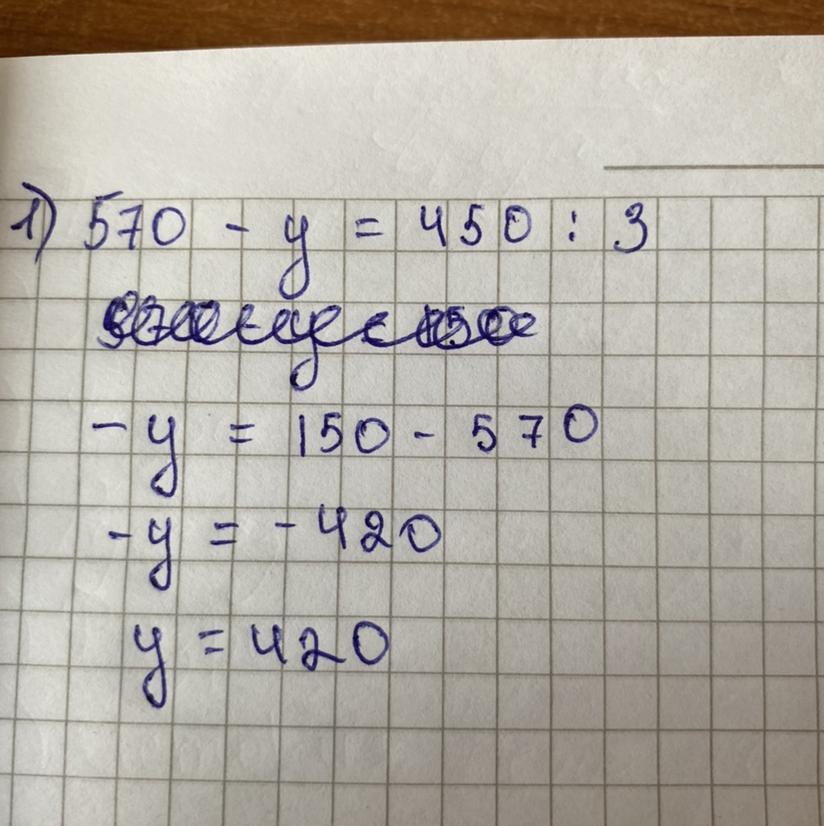 1) 570 - y = 450 : 3
-y = 150 - 570
-y = -420
y = 420